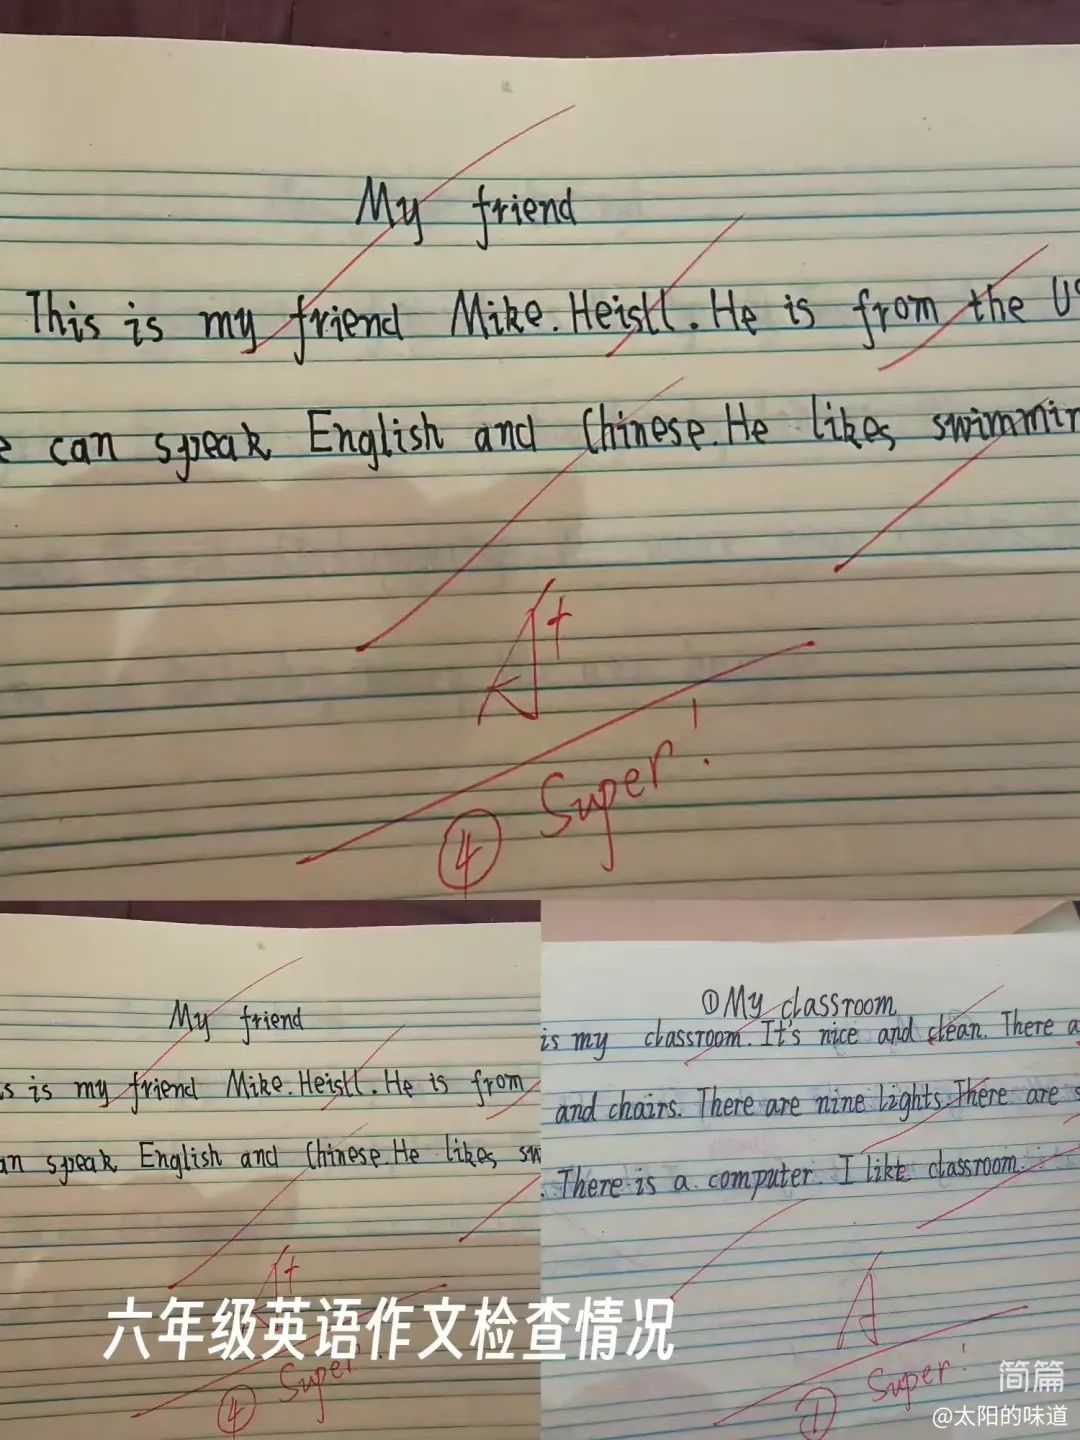 My friend
This is my friend Mike. Heistl. He is from the
can speak English and Chinese. He likes
A+
④ Super!
My friend
is my friend Mike. Heistl. He is from
speak English and Chinese. He likes
A+
④ Super!
①My classroom
is my classroom. It's nice and clean. There
and chairs. There are nine lights. There are
There is a computer. I like classroom.
A
① Super!
六年级英语作文检查情况
简篇
@太阳的味道